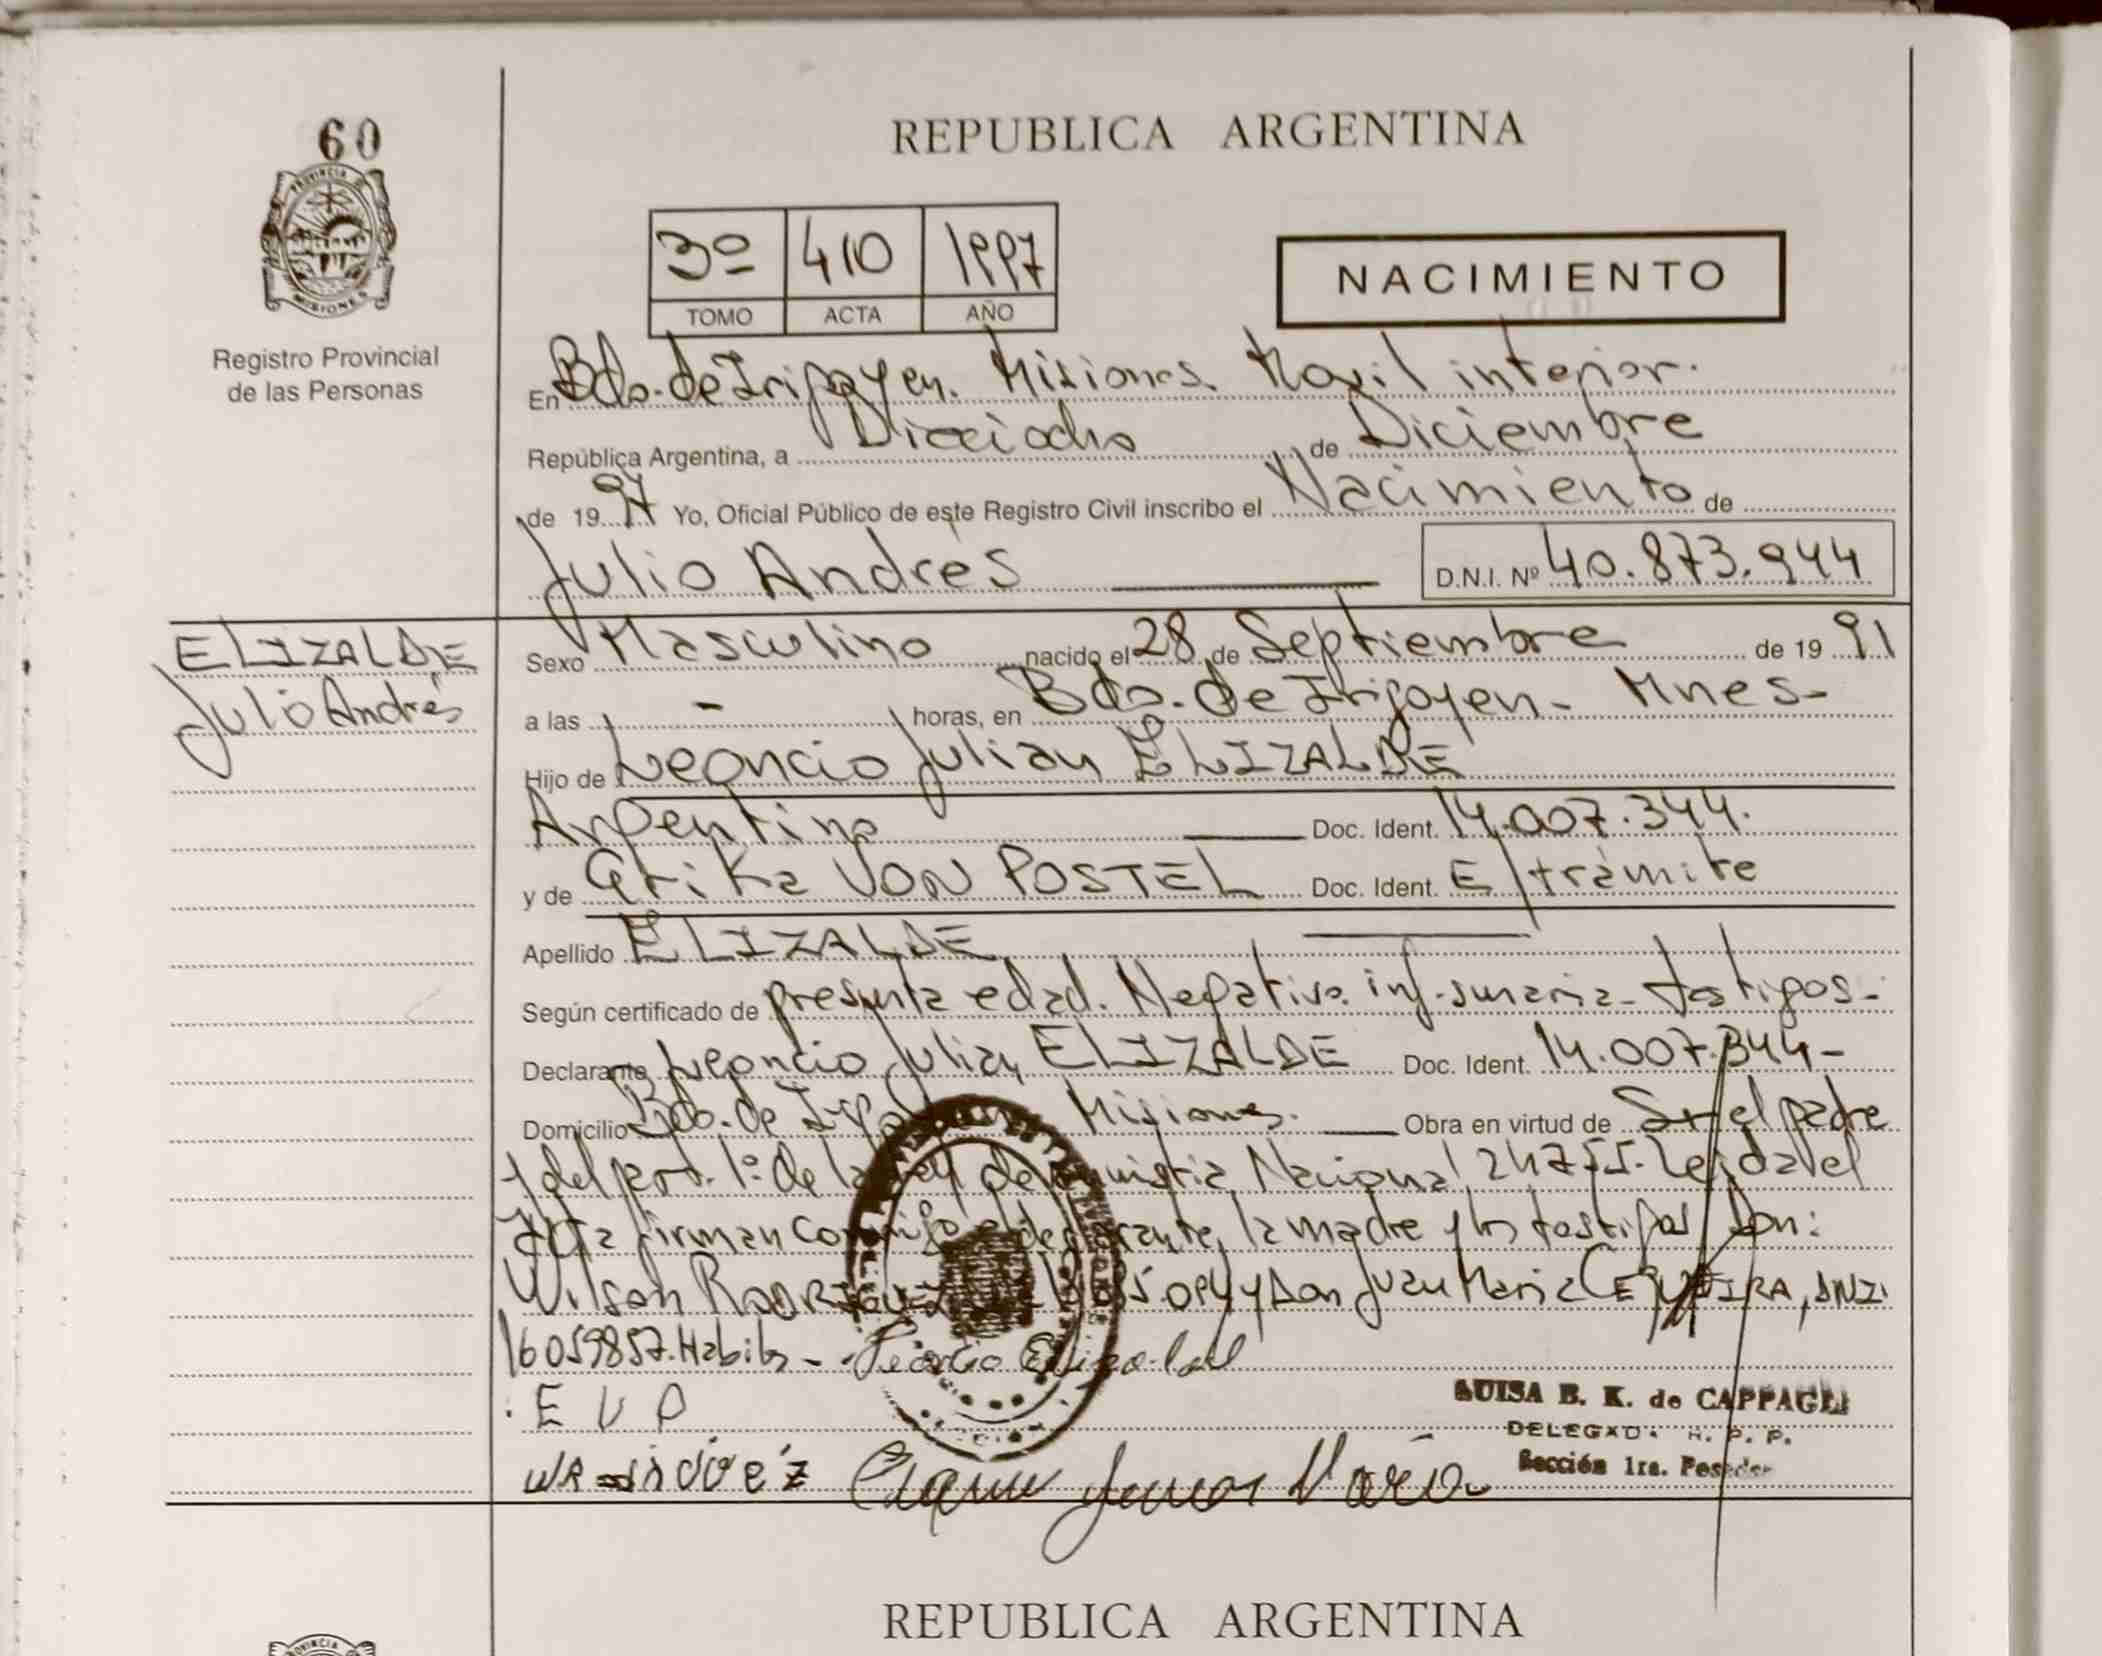 60
PROVINCIA DE
MISIONES
Registro Provincial
de las Personas
REPUBLICA ARGENTINA
3º 410 1997
TOMO ACTA AÑO
NACIMIENTO
En Bdo. de Irigoyen. Misiones. Movil interior.
República Argentina, a Dieciocho de Diciembre
de 1997 Yo, Oficial Público de este Registro Civil inscribo el Nacimiento de
Julio Andrés D.N.I. Nº 40.873.944
ELIZALDE
Julio Andrés
Sexo Masculino nacido el 28 de Septiembre de 1991
a las - horas, en Bdo. de Irigoyen - Mnes-
Hijo de Leoncio Julian ELIZALDE
Argentino Doc. Ident. 14.007.344.
y de Erika VON POSTEL Doc. Ident. E/trámite
Apellido ELIZALDE
Según certificado de presunta edad. Negativa. inf. sumaria - testigos-
Declarante Leoncio Julian ELIZALDE Doc. Ident. 14.007.344-
Domicilio Bdo. de Misiones. Obra en virtud de Sr el padre
y del art. 1º de la Ley de Amnistia Nacional 24755. Leida el
Acta firman conmigo el declarante, la madre y los testigos Don:
Wilson RODRIGUEZ y Don Juan Maria DNI.
16059857. Habiles -. Leoncio Elizalde
E V P
LUISA B. K. de CAPPAGLI
DELEGADA R. P. P.
Sección 1ra. Posadas
Maria
REPUBLICA ARGENTINA
PROVINCIA